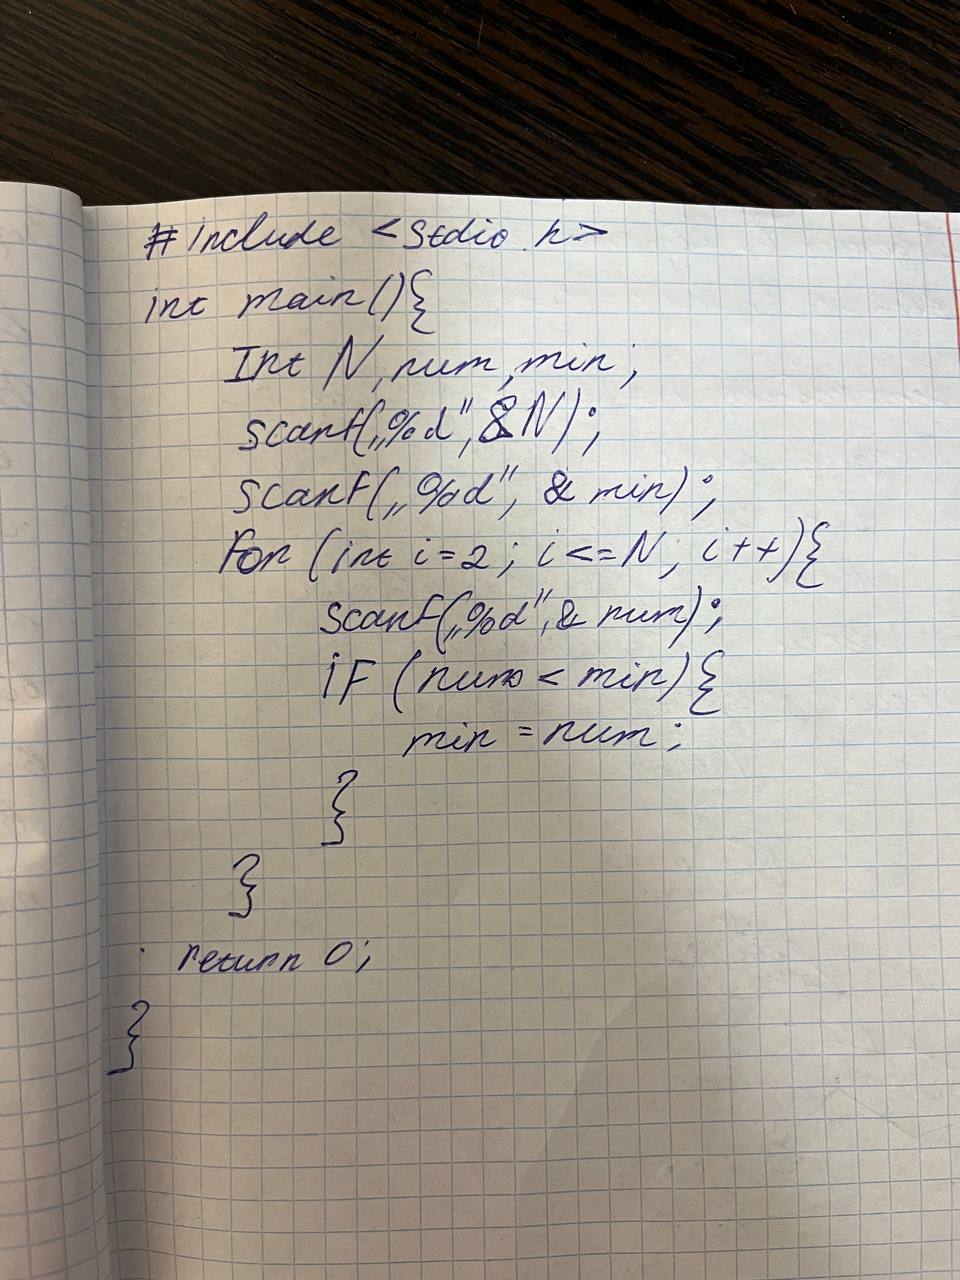 #include <stdio.h>
int main(){
Int N, num, min;
scanf(„%d", &N);
scanf(„%d", & min);
For (int i=2; i<=N; i++){
scanf(„%d", & num);
if (num < min){
min = num;
}
}
return 0;
}